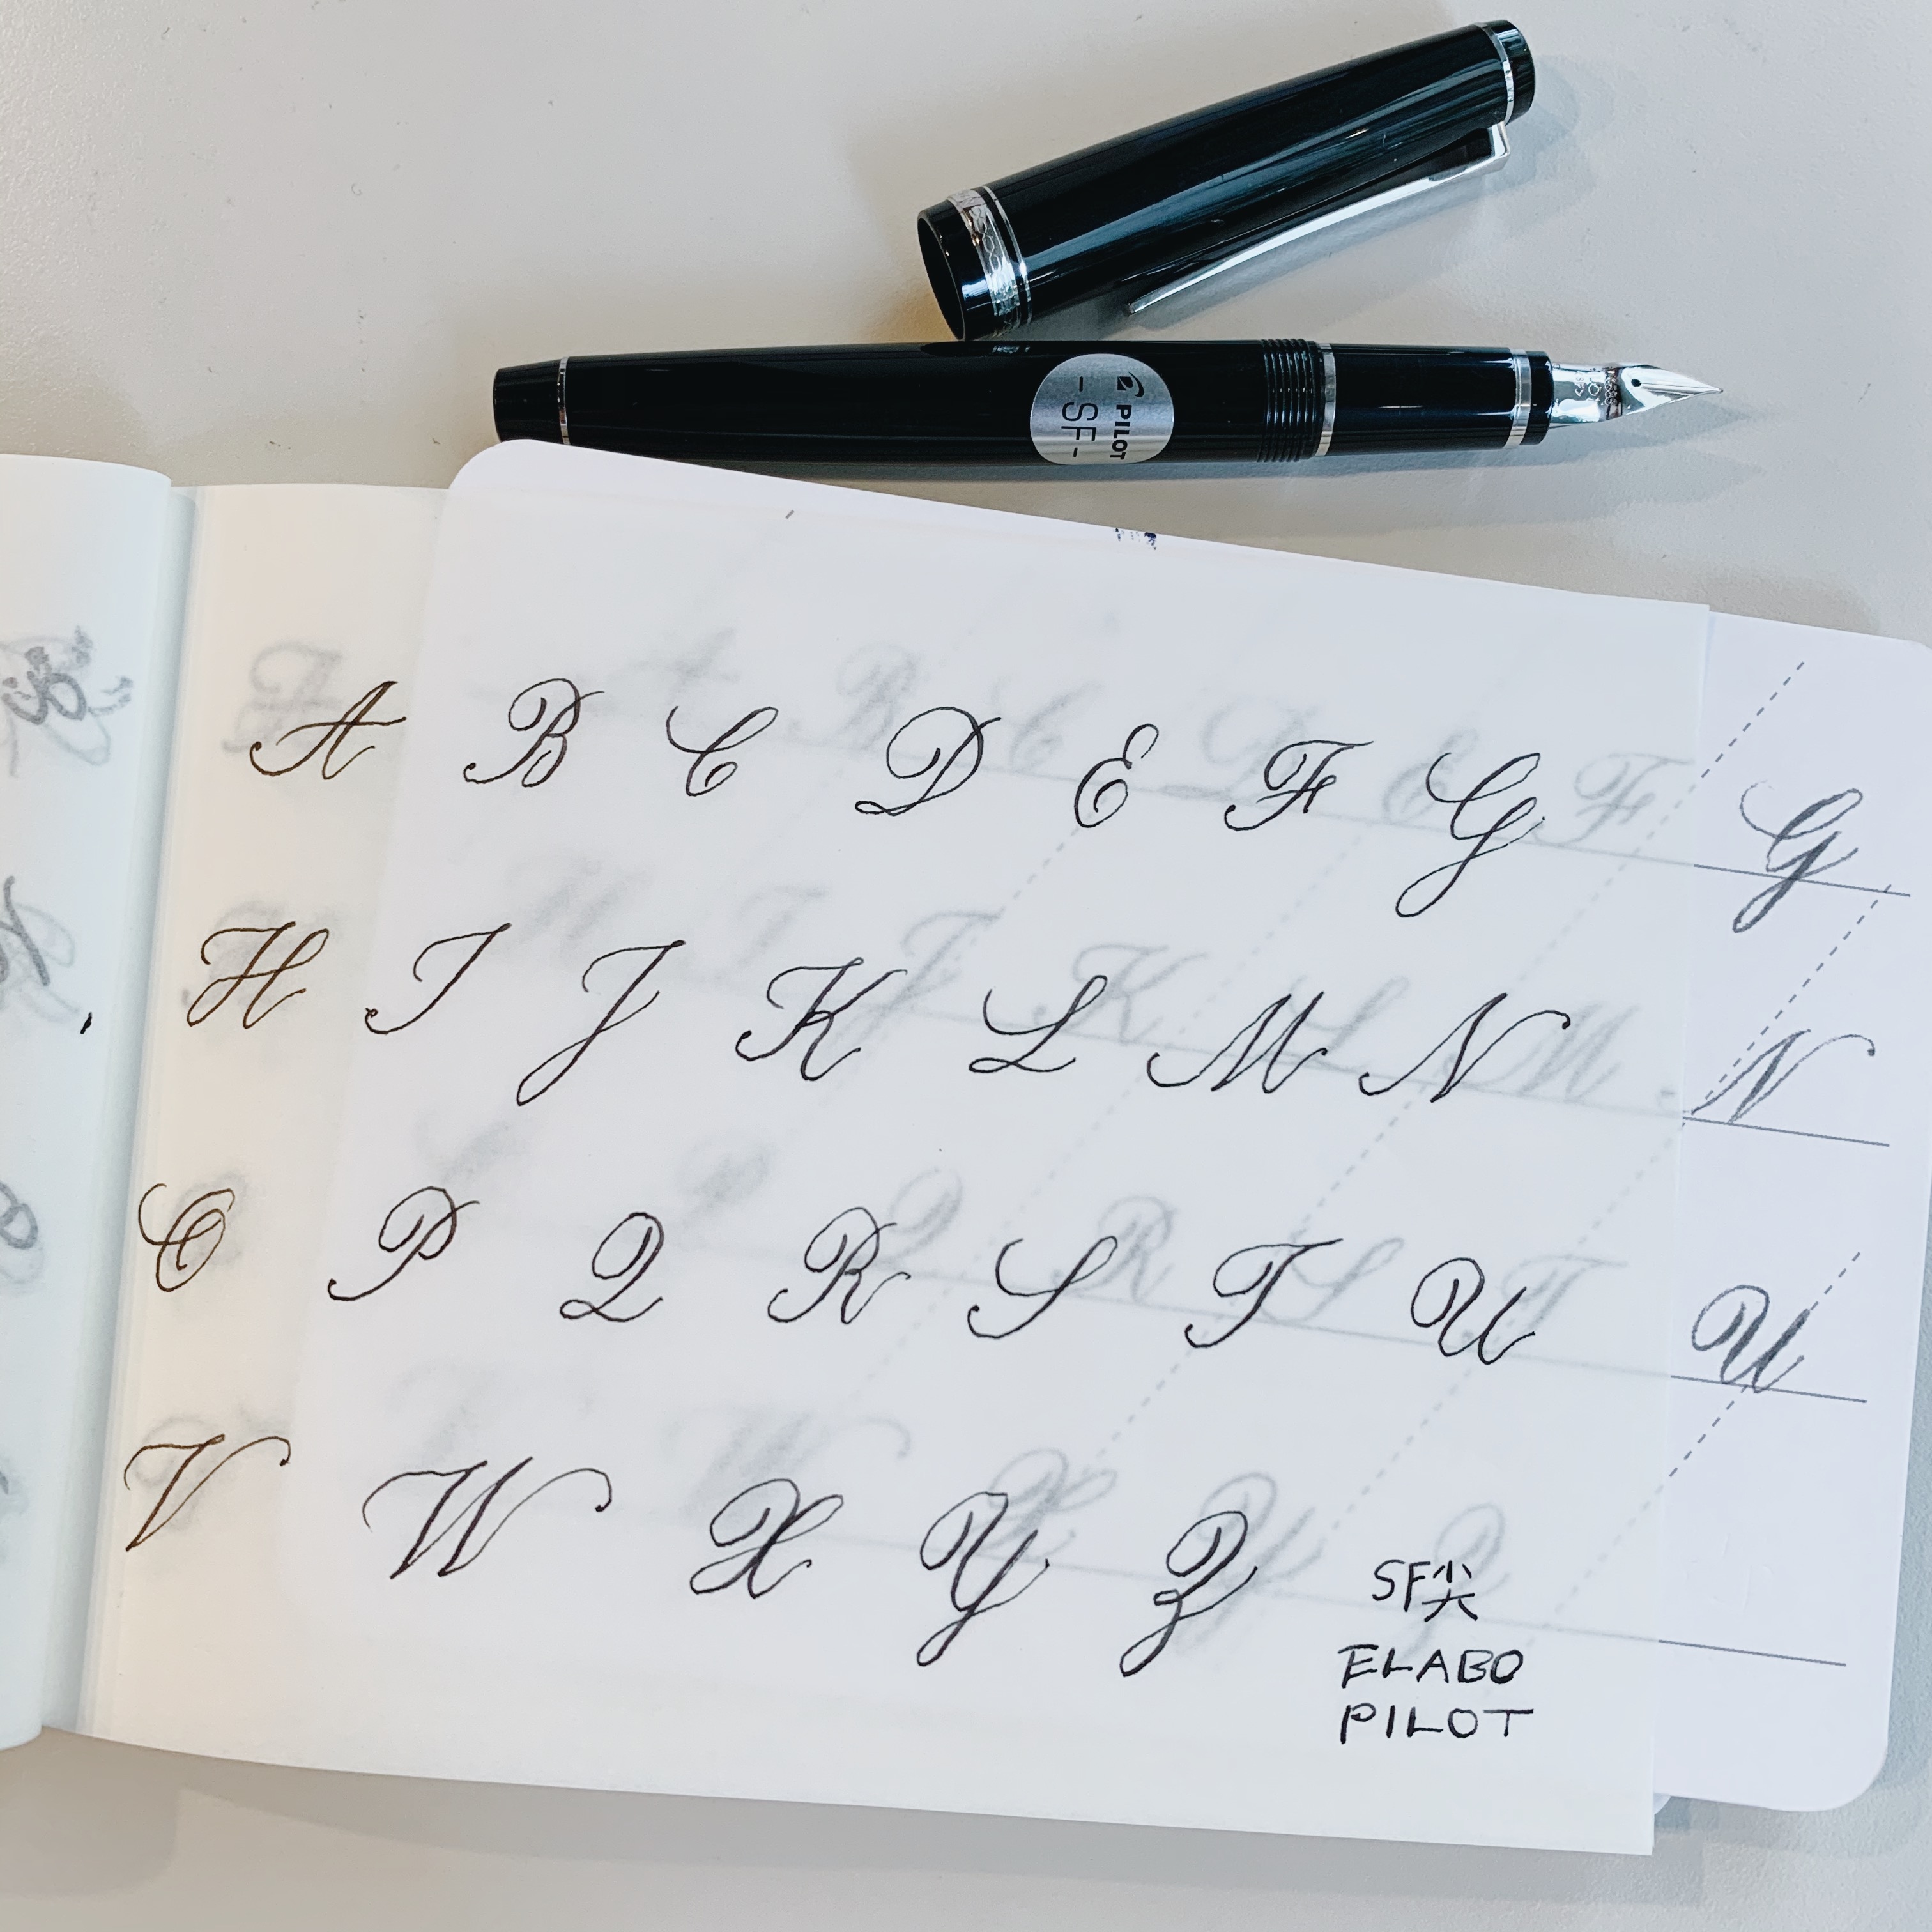 PILOT
-SF-
A B C D E F G G
H I J K L M N N
O P Q R S T U U
V W X Y Z
SF尖
ELABO
PILOT